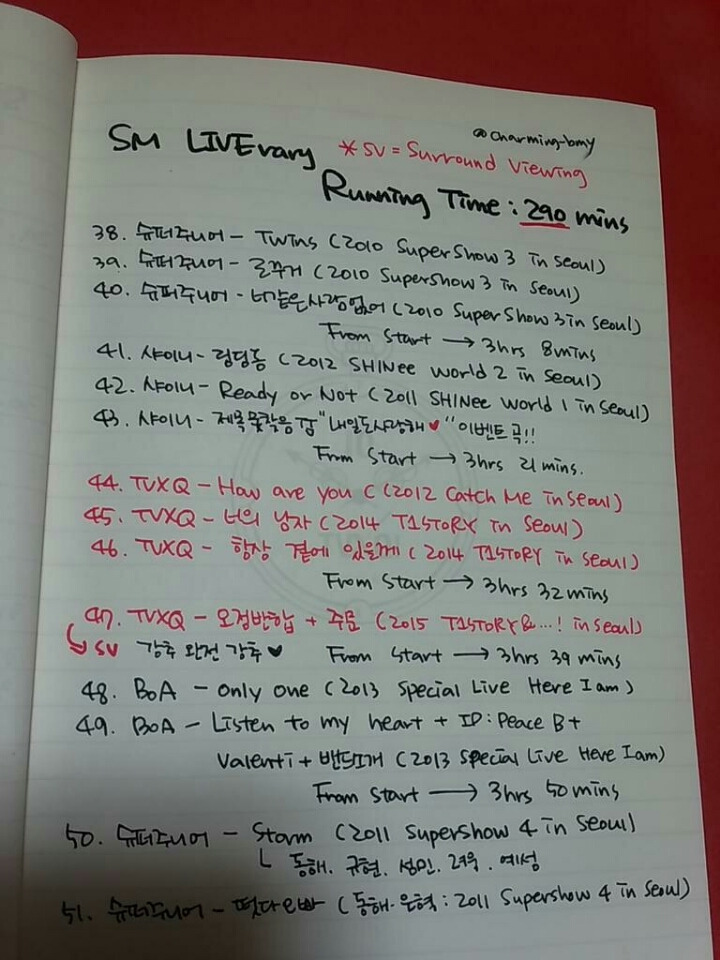 @charming-bmy
SM LIVErary *SV = Surround Viewing
Running Time : 290 mins
38. 슈퍼주니어 - Twins (2010 Super Show 3 in Seoul)
39. 슈퍼주니어 - 로꾸거 (2010 Super Show 3 in Seoul)
40. 슈퍼주니어 - 너같은사람없어 (2010 Super Show 3 in Seoul)
From Start → 3hrs 8mins
41. 샤이니 - 링딩동 (2012 SHINee World 2 in Seoul)
42. 샤이니 - Ready or Not (2011 SHINee World 1 in Seoul)
43. 샤이니 - 제목못찾음 "내일도사랑해♥" 이벤트곡!!
From Start → 3hrs 21 mins.
44. TVXQ - How are you C (2012 Catch Me in Seoul)
45. TVXQ - 너의 남자 (2014 T1STORY in Seoul)
46. TVXQ - 항상 곁에 있을게 (2014 T1STORY in Seoul)
From Start → 3hrs 32 mins
47. TVXQ - 오정반합 + 주문 (2015 T1STORY &...! in Seoul)
↳ SV 강추 완전 강추♥ From Start → 3hrs 39 mins
48. BoA - Only one (2013 Special Live Here I am)
49. BoA - Listen to my heart + ID : Peace B +
Valenti + (2013 Special Live Here I am)
From Start → 3hrs 50 mins
50. 슈퍼주니어 - Storm (2011 Supershow 4 in Seoul)
ㄴ 동해. 규현. 성민. 려욱. 예성
51. 슈퍼주니어 - 떴다오빠 (동해.은혁 : 2011 Supershow 4 in Seoul)